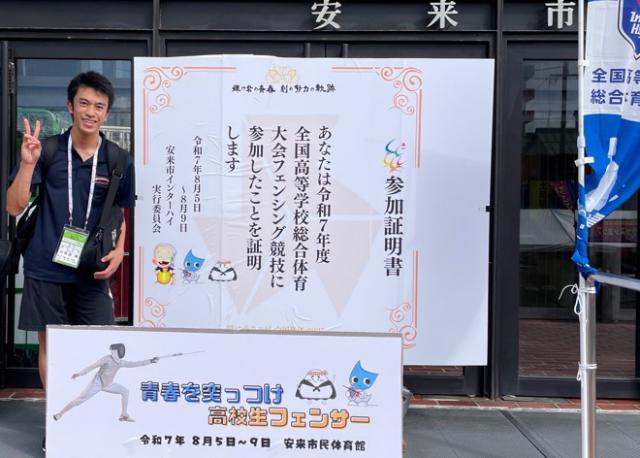 安来市
銀の宏の青春 剣の努力の軌跡
参加証明書
あなたは令和７年度
全国高等学校総合体育
大会フェンシング競技に
参加したことを証明
します
令和７年８月５日
～８月９日
安来市インターハイ
実行委員会
全国高等
総合体育
青春を突っつけ
高校生フェンサー
令和７年 ８月５日～９日 安来市民体育館